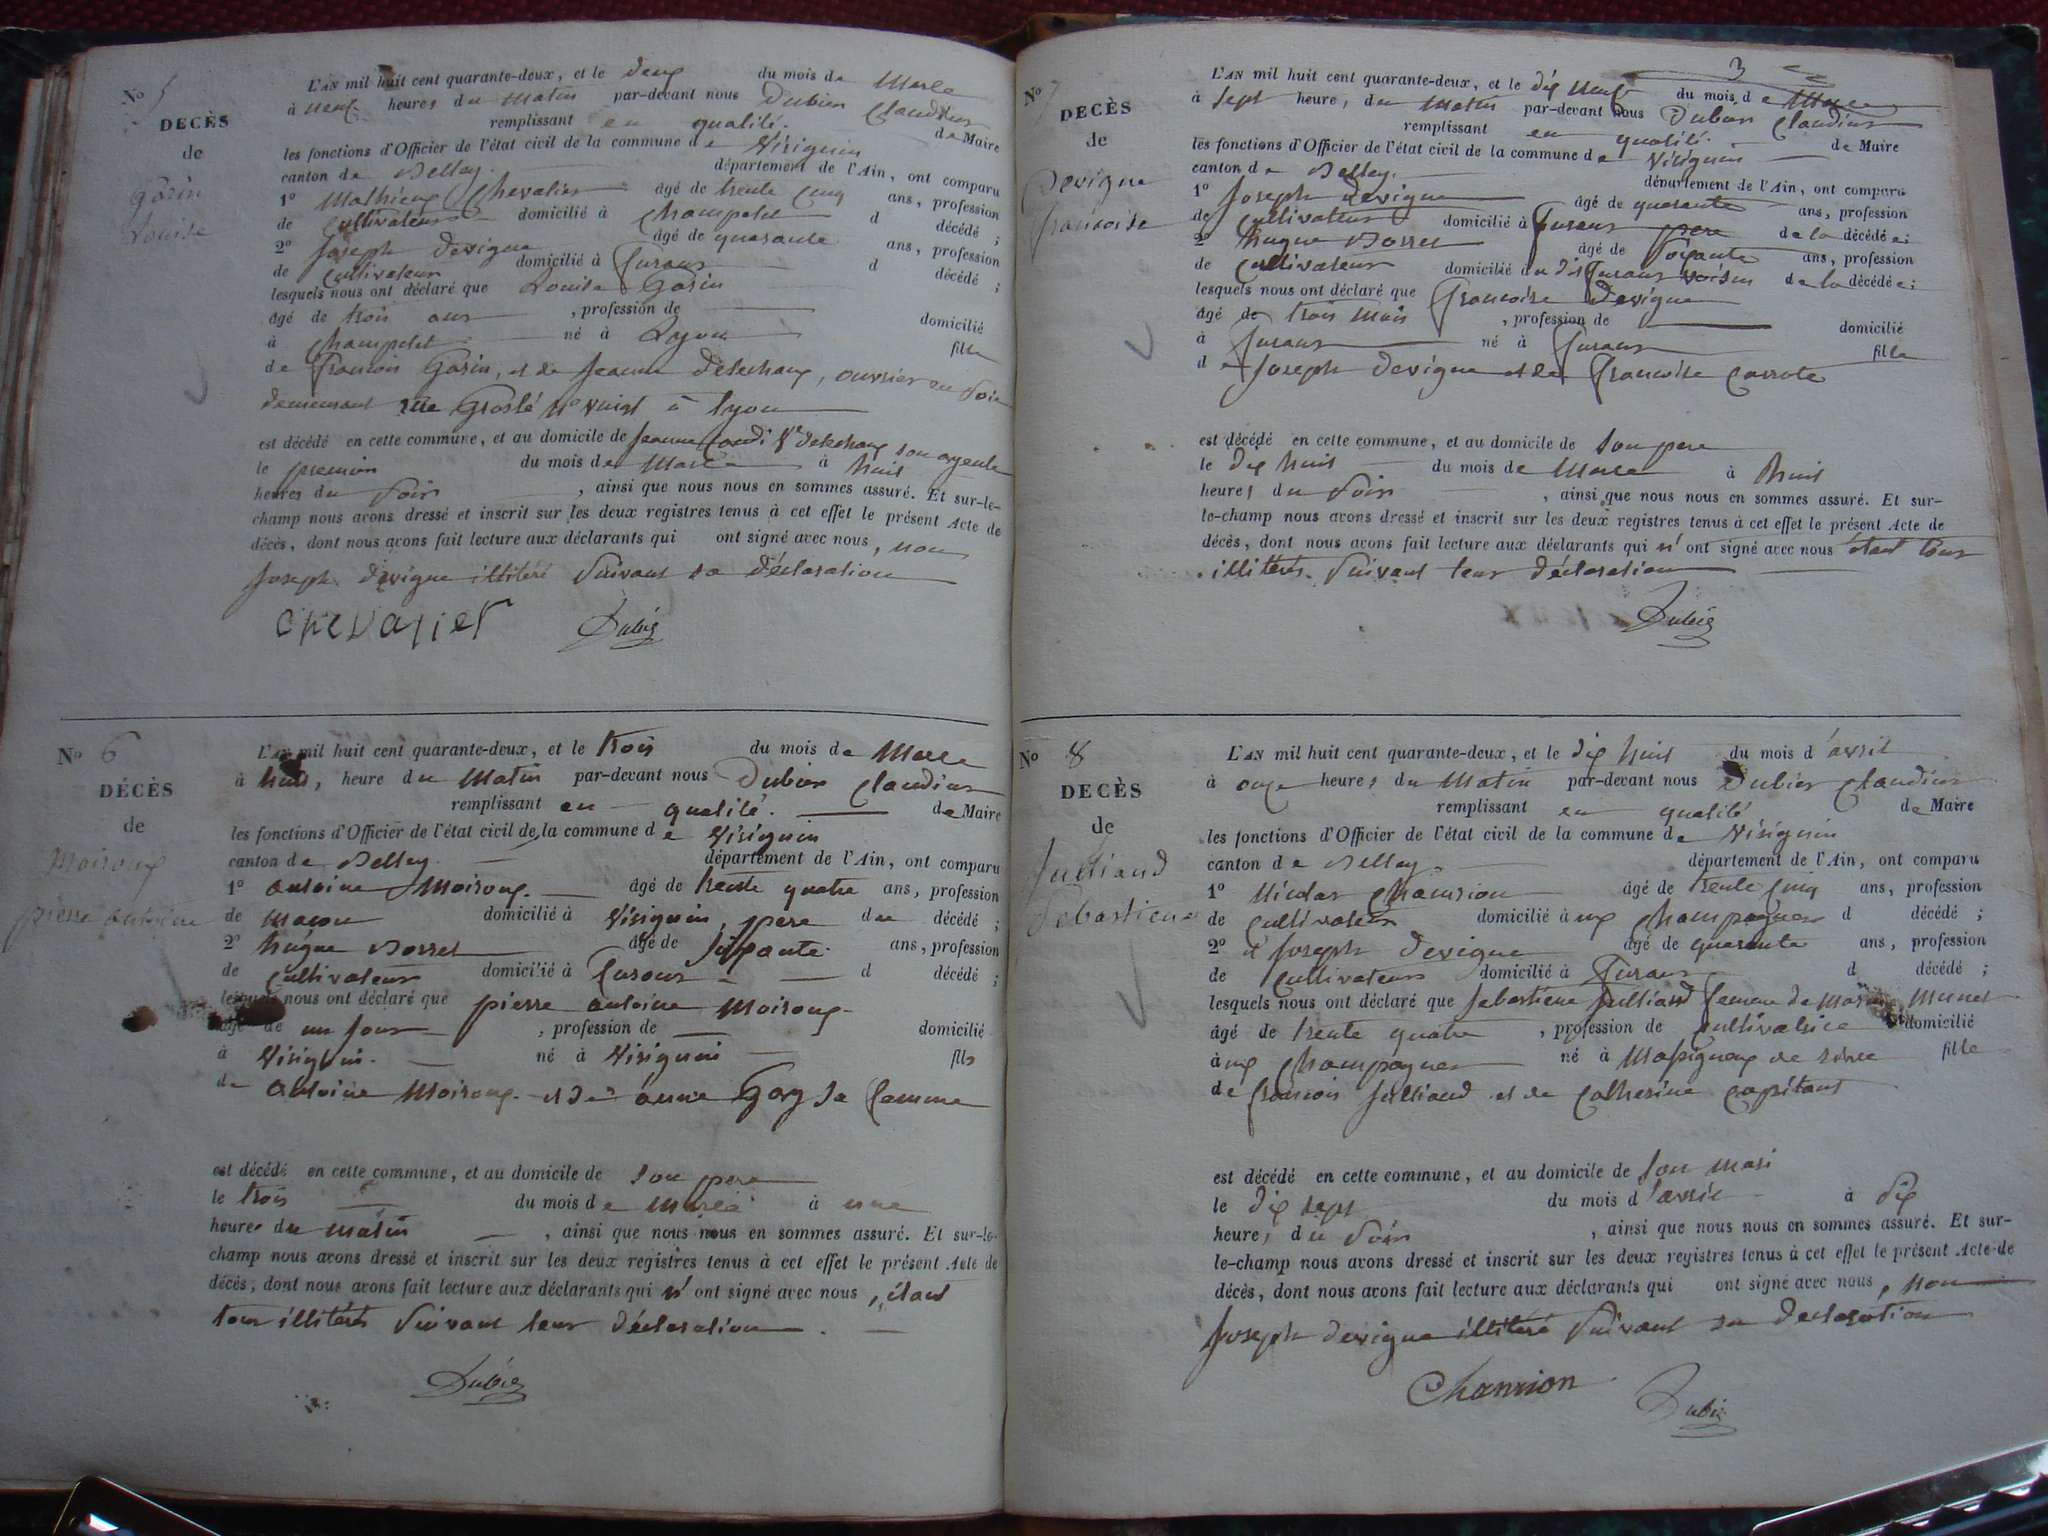 No 5
DECÈS
de
Gorin
Louise
L'AN mil huit cent quarante-deux, et le deux du mois de Marce
à neuf heures du Matin par-devant nous Dubier Claudius
remplissant en qualité. de Maire
les fonctions d'Officier de l'état civil de la commune de Virignin
canton de Belley. département de l'Ain, ont comparu
1o Mathieu Chevalier âgé de trente Cinq ans, profession
de Cultivateur domicilié à Champetel d décédé ;
2o Joseph Devigne âgé de quarante ans, profession
de Cultivateur domicilié à d décédé ;
lesquels nous ont déclaré que Louise Gorin
âgé de trois ans , profession de domicilié
à Champetel né à Lyon fille
de François Gorin, et de Jeanne Delechaux, ouvrier en Soie
demeurant rue Groslé no vingt à Lyon
est décédé en cette commune, et au domicile de Jeanne Ve Delechaux son ayeule
le premier du mois de Marce à huit
heures du Soir , ainsi que nous nous en sommes assuré. Et sur-le-
champ nous avons dressé et inscrit sur les deux registres tenus à cet effet le présent Acte de
décès, dont nous avons fait lecture aux déclarants qui ont signé avec nous, non
Joseph Devigne illitéré Suivant sa déclaration
chevalier Dubié
No 6
DÉCÈS
de
Moiroux
pierre antoine
L'AN mil huit cent quarante-deux, et le trois du mois de Marce
à huit, heure du Matin par-devant nous Dubier Claudius
remplissant en qualité. de Maire
les fonctions d'Officier de l'état civil de la commune de Virignin
canton de Belley. département de l'Ain, ont comparu
1o antoine Moiroux. âgé de trente quatre ans, profession
de Maçon domicilié à Virignin, pere du décédé ;
2o hugue Borret âgé de soixante ans, profession
de Cultivateur domicilié à d décédé ;
lesquels nous ont déclaré que pierre antoine Moiroux
âgé de un jour , profession de domicilié
à Virignin. né à Virignin fils
de antoine Moiroux. et de anne Goy sa femme
est décédé en cette commune, et au domicile de son pere
le trois du mois de Marce à une
heures du matin , ainsi que nous nous en sommes assuré. Et sur-le-
champ nous avons dressé et inscrit sur les deux registres tenus à cet effet le présent Acte de
décès, dont nous avons fait lecture aux déclarants qui n' ont signé avec nous, étant
tous illitérés Suivant leur déclaration.
Dubié
3
No 7
DECÈS
de
Devigne
francoise
L'AN mil huit cent quarante-deux, et le dix neuf du mois de Marce
à sept heure, du Matin par-devant nous Dubier Claudius
remplissant en qualité. de Maire
les fonctions d'Officier de l'état civil de la commune de Virignin
canton de Belley. département de l'Ain, ont comparu
1o Joseph Devigne âgé de quarante ans, profession
de Cultivateur domicilié à pere de la décédée;
2o hugue Borret âgé de soixante ans, profession
de Cultivateur domicilié au dit voisin de la décédée;
lesquels nous ont déclaré que Francoise Devigne
âgé de trois mois , profession de domicilié
à né à fille
de Joseph Devigne et de Francoise Carrote
est décédé en cette commune, et au domicile de son pere
le dix huit du mois de Marce à huit
heures du Soir , ainsi que nous nous en sommes assuré. Et sur-
le-champ nous avons dressé et inscrit sur les deux registres tenus à cet effet le présent Acte de
décès, dont nous avons fait lecture aux déclarants qui n' ont signé avec nous étant tous
illitérés. Suivant leur déclaration
Dubié
No 8
DECÈS
de
Julliand
Sebastiene
L'AN mil huit cent quarante-deux, et le dix huit du mois d'avril
à onze heures du Matin par-devant nous Dubier Claudius
remplissant en qualité de Maire
les fonctions d'Officier de l'état civil de la commune de Virignin
canton de Belley. département de l'Ain, ont comparu
1o Nicolas Chanrion âgé de trente Cinq ans, profession
de Cultivateur domicilié à ux Champagnes d décédé ;
2o Joseph Devigne âgé de quarante ans, profession
de Cultivateur domicilié à d décédé ;
lesquels nous ont déclaré que Sebastiene Julliand femme de Munet
âgé de trente quatre , profession de Cultivatrice domicilié
à ux Champagnes né à Massigneux de rives fille
de François Julliand et de Catherine Capitant
est décédé en cette commune, et au domicile de son mari
le dix sept du mois d'avril à dix
heures du Soir , ainsi que nous nous en sommes assuré. Et sur-
le-champ nous avons dressé et inscrit sur les deux registres tenus à cet effet le présent Acte de
décès, dont nous avons fait lecture aux déclarants qui ont signé avec nous, non
Joseph Devigne illitéré Suivant sa déclaration
Chanrion Dubié